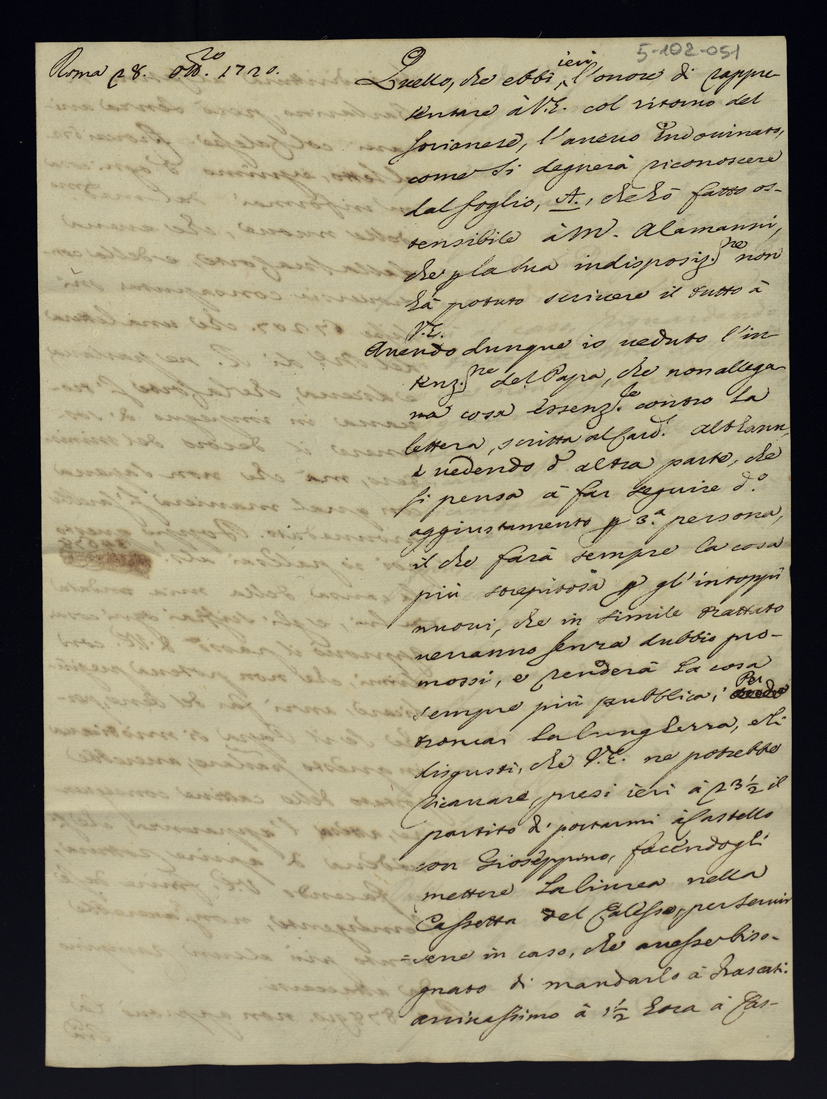 5-102-051
Roma 28. Ottbre. 1720.
Quello, che ebbi ieri l'onore di rappre-
sentare à V.E. col ritorno del
Sorianese, l'aveva indovinato,
come si degnerà riconoscere
dal foglio, A., che hò fatto os-
tensibile à Mr. Alamanni,
che p la sua indisposiz.ne non
hà potuto scrivere il tutto à
V.E.
Avendo dunque io veduto l'in-
tenz.ne del Papa, che non allega-
va cosa essenz.le contro la
lettera, scritta al Card.l Althann,
e vedendo d'altra parte, che
si pensa à far seguire d.o
aggiustamento p 3.a persona,
il che farà sempre la cosa
più strepitosa p gl'intoppi
nuovi, che in simile trattato
verranno senza dubbio pro-
mossi, e renderà la cosa
sempre più pubblica; Per
troncar la lunghezza, e li
disgusti, che V.E. ne potrebbe
ricavare, presi ieri à 23½ il
partito di portarmi à Castello
con Gioseppino, facendogli
mettere la livrea nella
Cassetta del Calesse, per servir
=sene in caso, che avesse biso-
gnato di mandarlo à Frascati.
arrivassimo à 1½ hora à Cas-